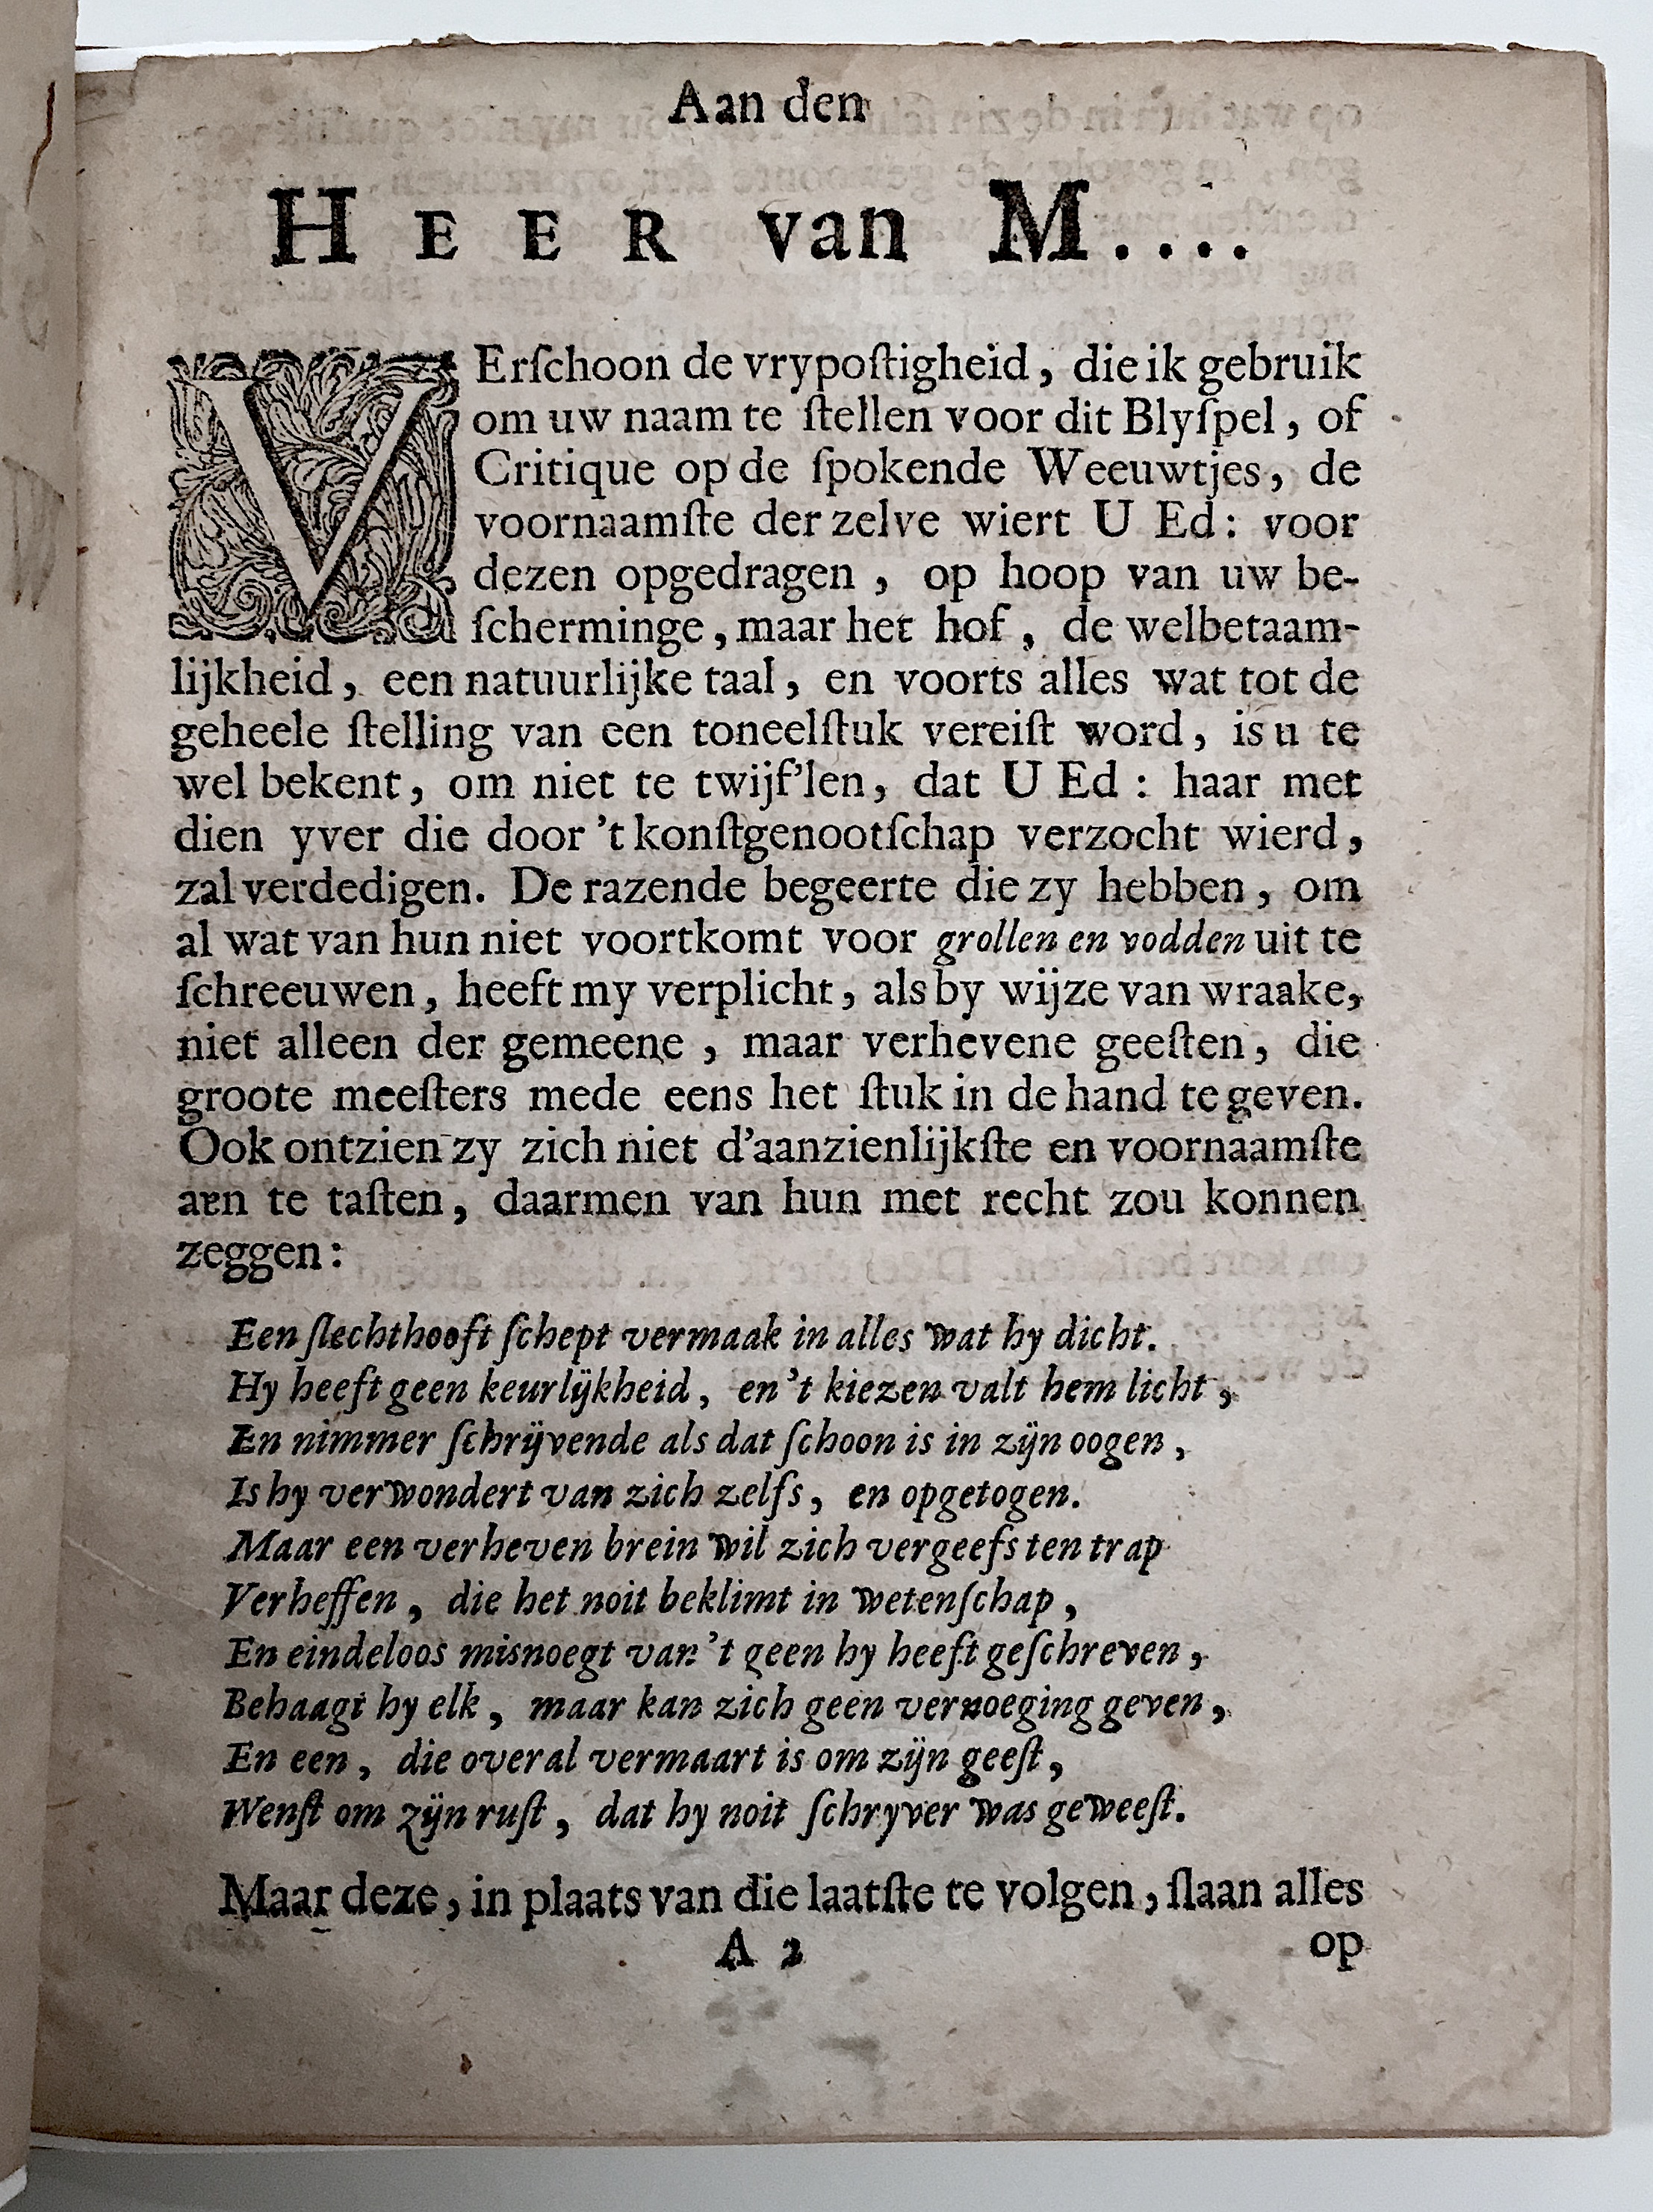 Aan den
HEER van M....
VErſchoon de vrypoſtigheid, die ik gebruik
om uw naam te ſtellen voor dit Blyſpel, of
Critique op de ſpokende Weeuwtjes, de
voornaamſte der zelve wiert U Ed: voor
dezen opgedragen, op hoop van uw be-
ſcherminge, maar het hof, de welbetaam-
lijkheid, een natuurlijke taal, en voorts alles wat tot de
geheele ſtelling van een toneelſtuk vereiſt word, is u te
wel bekent, om niet te twijf'len, dat U Ed: haar met
dien yver die door 't konſtgenootſchap verzocht wierd,
zal verdedigen. De razende begeerte die zy hebben, om
al wat van hun niet voortkomt voor grollen en vodden uit te
ſchreeuwen, heeft my verplicht, als by wijze van wraake,
niet alleen der gemeene, maar verhevene geeſten, die
groote meeſters mede eens het ſtuk in de hand te geven.
Ook ontzien zy zich niet d'aanzienlijkſte en voornaamſte
aen te taſten, daarmen van hun met recht zou konnen
zeggen:
Een ſlechthooft ſchept vermaak in alles wat hy dicht.
Hy heeft geen keurlijkheid, en 't kiezen valt hem licht,
En nimmer ſchrijvende als dat ſchoon is in zijn oogen,
Is hy verwondert van zich zelfs, en opgetogen.
Maar een verheven brein wil zich vergeefs ten trap
Verheffen, die het noit beklimt in wetenſchap,
En eindeloos misnoegt van 't geen hy heeft geſchreven,
Behaagt hy elk, maar kan zich geen vernoeging geven,
En een, die overal vermaart is om zijn geeſt,
Wenſt om zijn ruſt, dat hy noit ſchryver was geweeſt.
Maar deze, in plaats van die laatſte te volgen, ſlaan alles
A 2 op